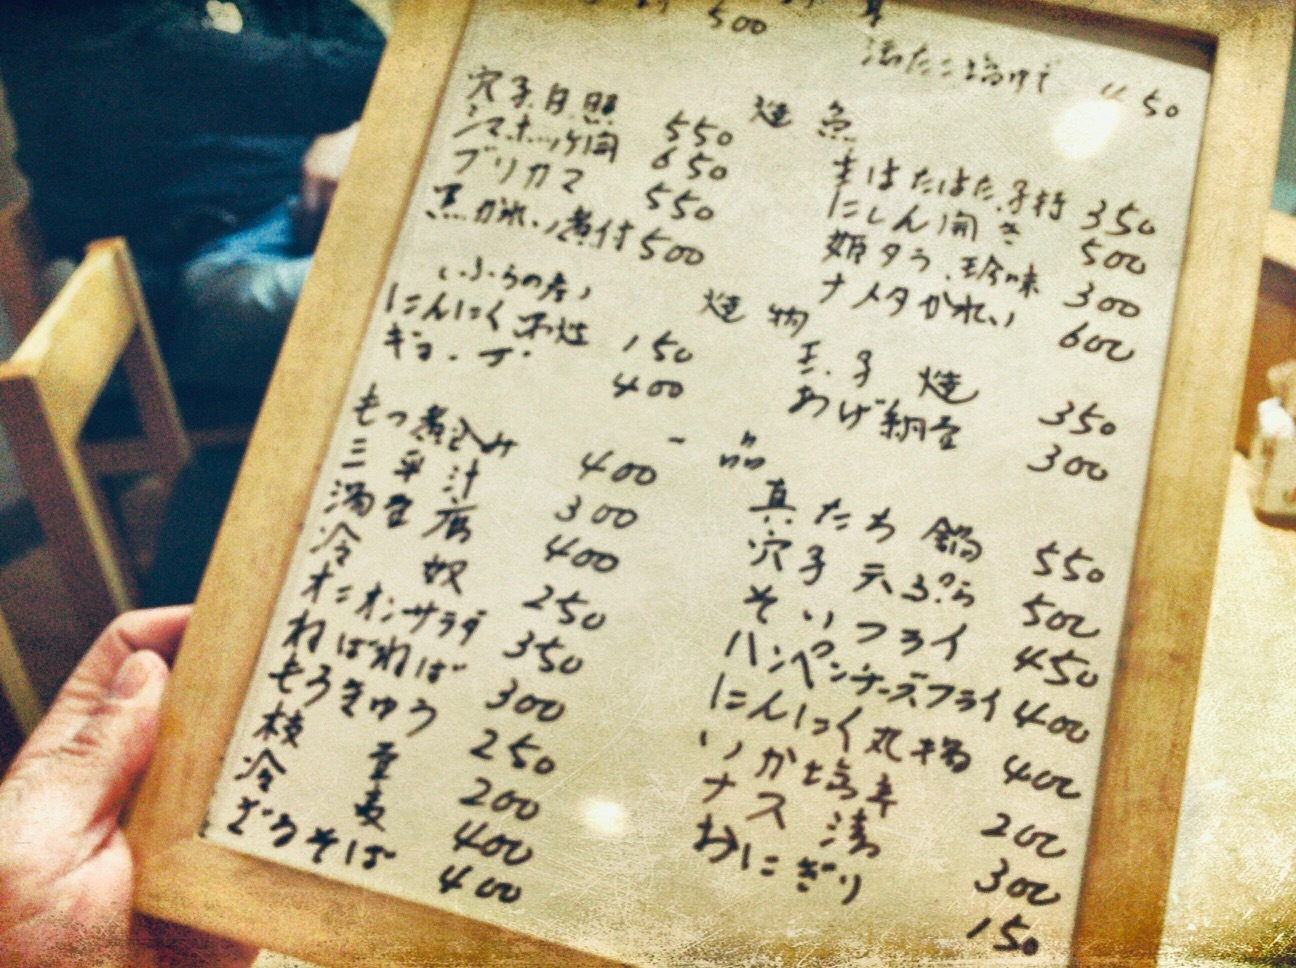 500
450
焼魚
穴子 550
シマホッケ開 650
ブリカマ 550
黒がれい煮付 500
生はたはた子持 350
にしん開き 500
姫タラ珍味 300
ナメタかれい 600
焼物
にんにく 150
ギョーザ 400
玉子焼 350
あげ納豆 300
一品
もつ煮込み 400
三平汁 300
湯豆腐 400
冷奴 250
オニオンサラダ 350
ねばねば 300
もろきゅう 250
枝豆 200
冷麦 400
ざるそば 400
真たち鍋 550
穴子天ぷら 500
そいフライ 450
ハンペンチーズフライ 400
にんにく丸揚 400
いか塩辛 200
ナス漬 300
おにぎり 150